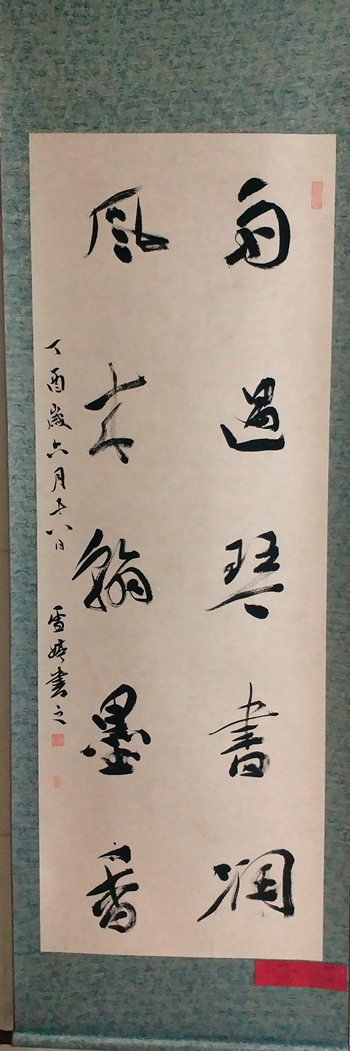 雨過琴書潤
風來翰墨香
丁酉歲六月十八日 雪婷書之